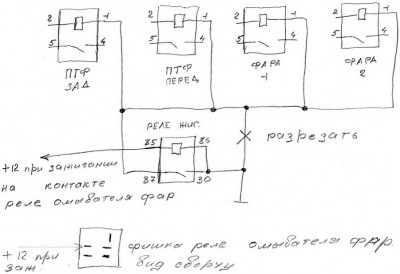 2 1 2 1 2 1 2 1
5 4 5 4 5 4 5 4
ПТФ ЗАД
ПТФ ПЕРЕД
ФАРА -1
ФАРА 2
РЕЛЕ ЖИГ.
85 86
разрезать
+12 при зажигании
на контакте
реле омывателя фар
87 30
+12 при
заж.
фишка реле омывателя фар.
вид сверху